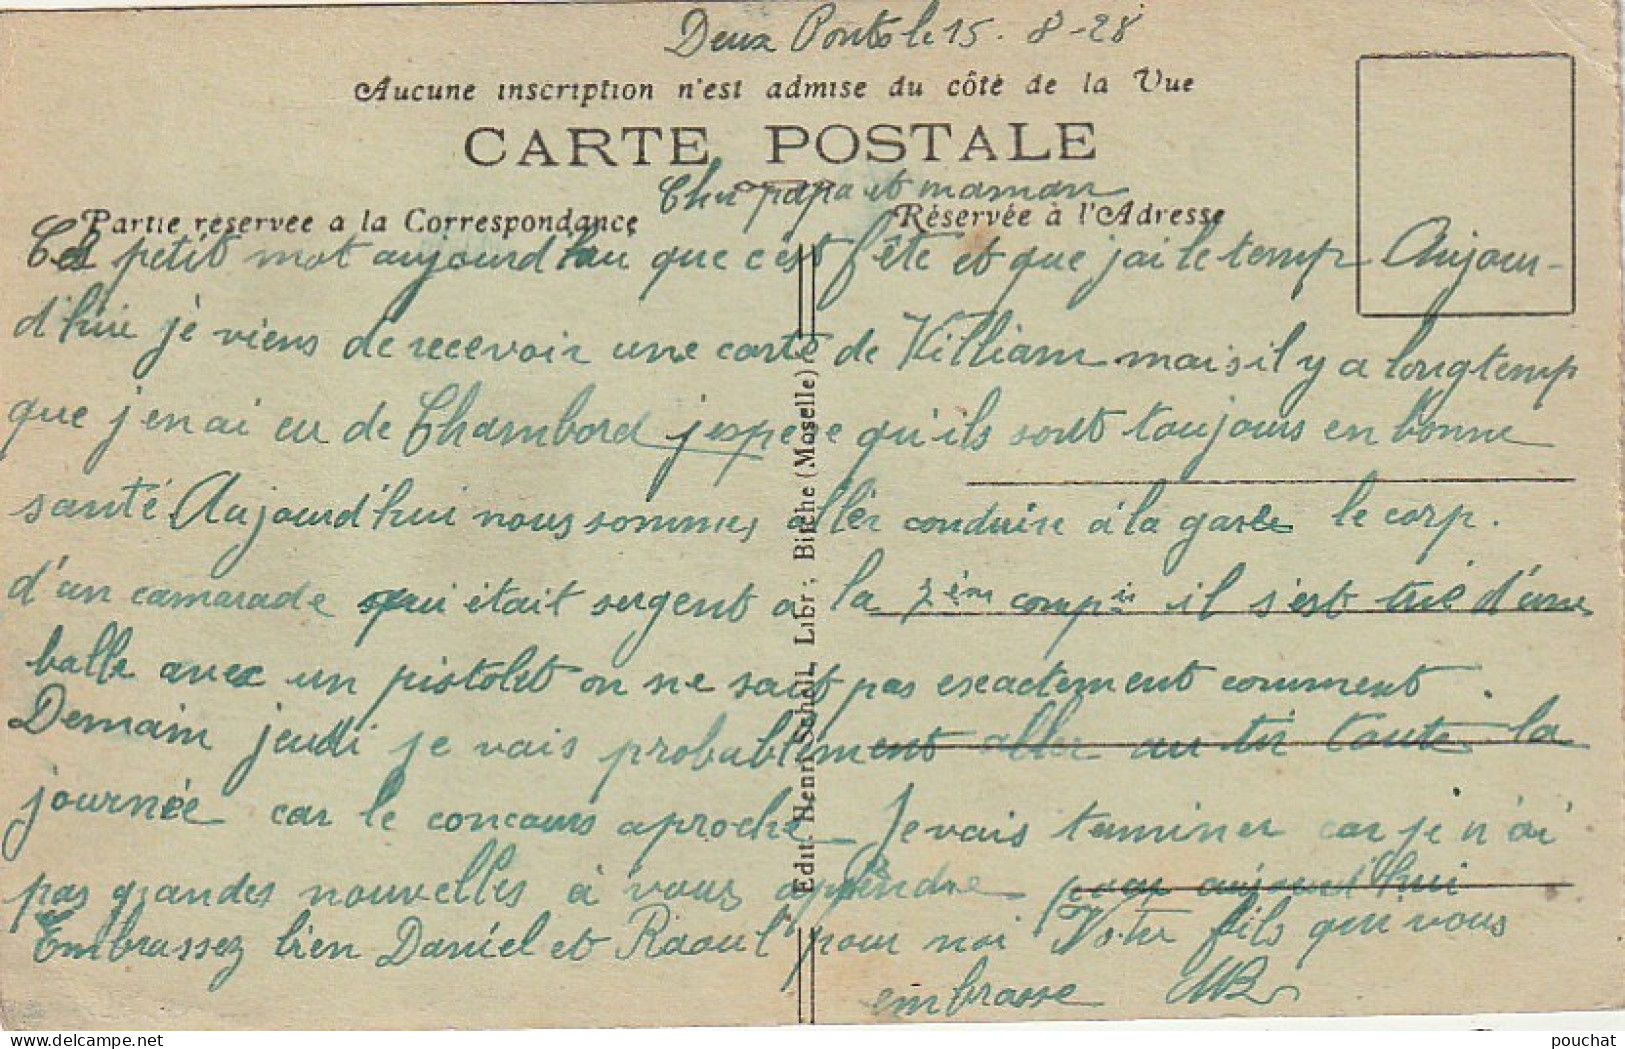 Deux Ponts le 15-8-28
Aucune inscription n'est admise du côté de la Vue
CARTE POSTALE
Cher papa et maman
Partie réservée a la Correspondance
Réservée à l'Adresse
Ces petit mot aujourd'hui que c'est fête et que j'ai le temp Aujour-
d'hui je viens de recevoir une carte de Killiam mais il y a longtemp
que j'en ai eu de Chambord j'espere qu'ils sont toujours en bonne
santé. Aujourd'hui nous sommes aller conduire à la gare le corp.
d'un camarade qui était sergent a la 7ème compie il s'est tué d'une
balle avec un pistolet on ne sait pas exactement comment.
Demain jeudi je vais probablement aller au tir toute la
journée car le concours aproche - Je vais terminer car je n'ai
pas grandes nouvelles à vous appendre pour aujourd'hui
Embrassez bien Daniel et Raoul pour moi Votre fils qui vous
embrasse
Edit. Henri Scholl, Libr; Bitche (Moselle)
pouchat